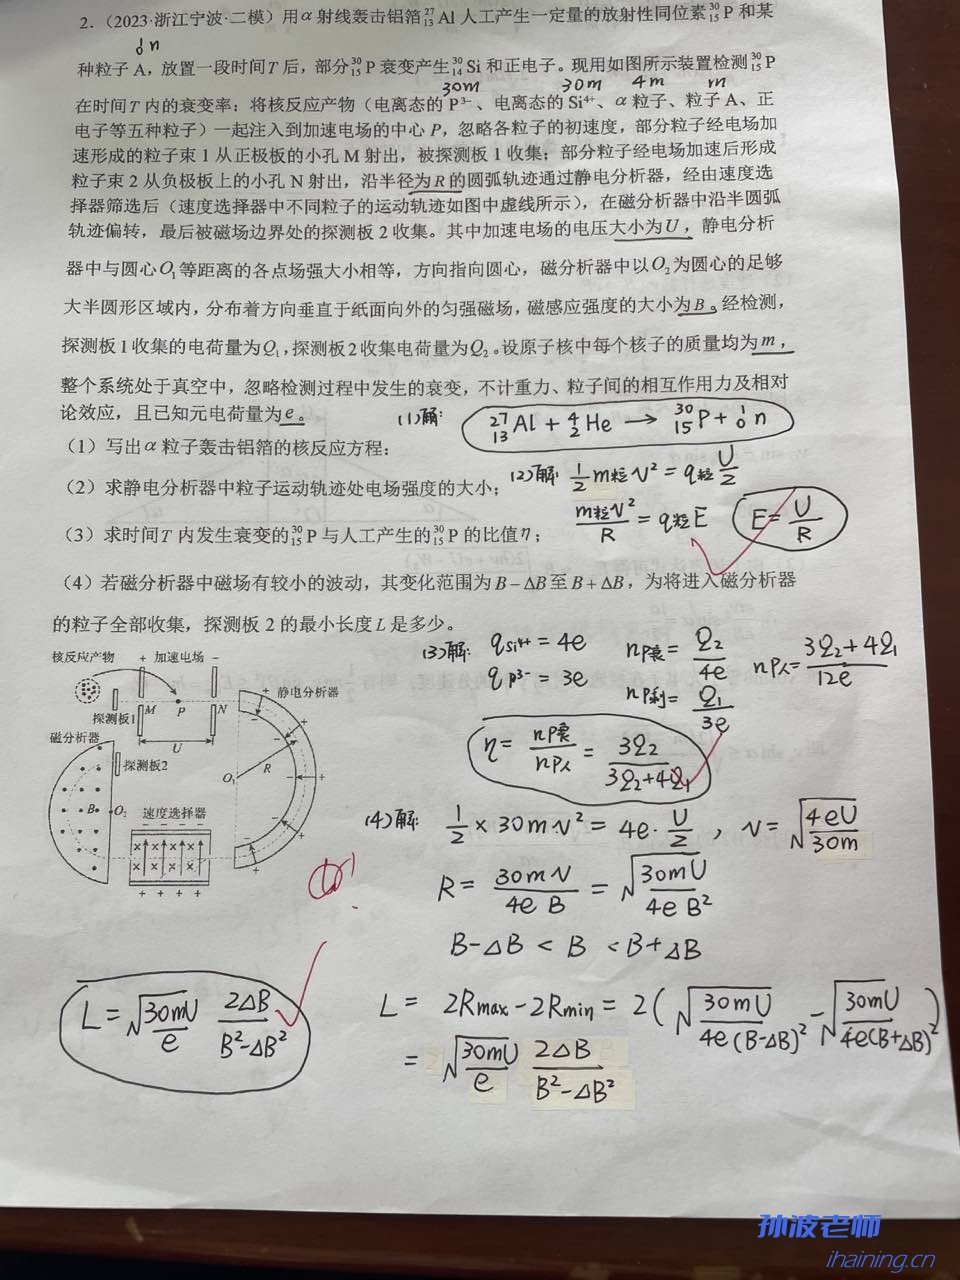 2.（2023·浙江宁波·二模）用α射线轰击铝箔²⁷₁₃Al人工产生一定量的放射性同位素³⁰₁₅P和某
¹₀n
种粒子A，放置一段时间T后，部分³⁰₁₅P衰变产生³⁰₁₄Si和正电子。现用如图所示装置检测³⁰₁₅P
30m 30m 4m m
在时间T内的衰变率：将核反应产物（电离态的P³⁻、电离态的Si⁴⁺、α粒子、粒子A、正
电子等五种粒子）一起注入到加速电场的中心P，忽略各粒子的初速度，部分粒子经电场加
速形成的粒子束1从正极板的小孔M射出，被探测板1收集；部分粒子经电场加速后形成
粒子束2从负极板上的小孔N射出，沿半径为R的圆弧轨迹通过静电分析器，经由速度选
择器筛选后（速度选择器中不同粒子的运动轨迹如图中虚线所示），在磁分析器中沿半圆弧
轨迹偏转，最后被磁场边界处的探测板2收集。其中加速电场的电压大小为U，静电分析
器中与圆心O₁等距离的各点场强大小相等，方向指向圆心，磁分析器中以O₂为圆心的足够
大半圆形区域内，分布着方向垂直于纸面向外的匀强磁场，磁感应强度的大小为B。经检测，
探测板1收集的电荷量为Q₁，探测板2收集电荷量为Q₂。设原子核中每个核子的质量均为m，
整个系统处于真空中，忽略检测过程中发生的衰变，不计重力、粒子间的相互作用力及相对
论效应，且已知元电荷量为e。
(1)解: ²⁷₁₃Al + ⁴₂He → ³⁰₁₅P + ¹₀n
（1）写出α粒子轰击铝箔的核反应方程；
(2)解: 1/2 m粒v² = q粒 U/2
（2）求静电分析器中粒子运动轨迹处电场强度的大小；
m粒v²/R = q粒E E = U/R
（3）求时间T内发生衰变的³⁰₁₅P与人工产生的³⁰₁₅P的比值η；
（4）若磁分析器中磁场有较小的波动，其变化范围为B−ΔB至B+ΔB，为将进入磁分析器
的粒子全部收集，探测板2的最小长度L是多少。
(3)解: qSi⁴⁺ = 4e nP衰 = Q₂/4e nP人 = (3Q₂+4Q₁)/12e
qP³⁻ = 3e nP剩 = Q₁/3e
η = nP衰/nP人 = 3Q₂/(3Q₂+4Q₁)
核反应产物 + 加速电场 −
静电分析器
探测板1 M P N
U
磁分析器
探测板2
O₁ R
B O₂
速度选择器
+ + + +
(4)解: 1/2 × 30mv² = 4e · U/2 , v = √(4eU/30m)
R = 30mv/4eB = √(30mU/4eB²)
B−ΔB < B < B+ΔB
L = 2Rmax − 2Rmin = 2(√(30mU/4e(B−ΔB)²) − √(30mU/4e(B+ΔB)²))
= √(30mU/e) 2ΔB/(B²−ΔB²)
L = √(30mU/e) 2ΔB/(B²−ΔB²)
孙波老师
ihaining.cn